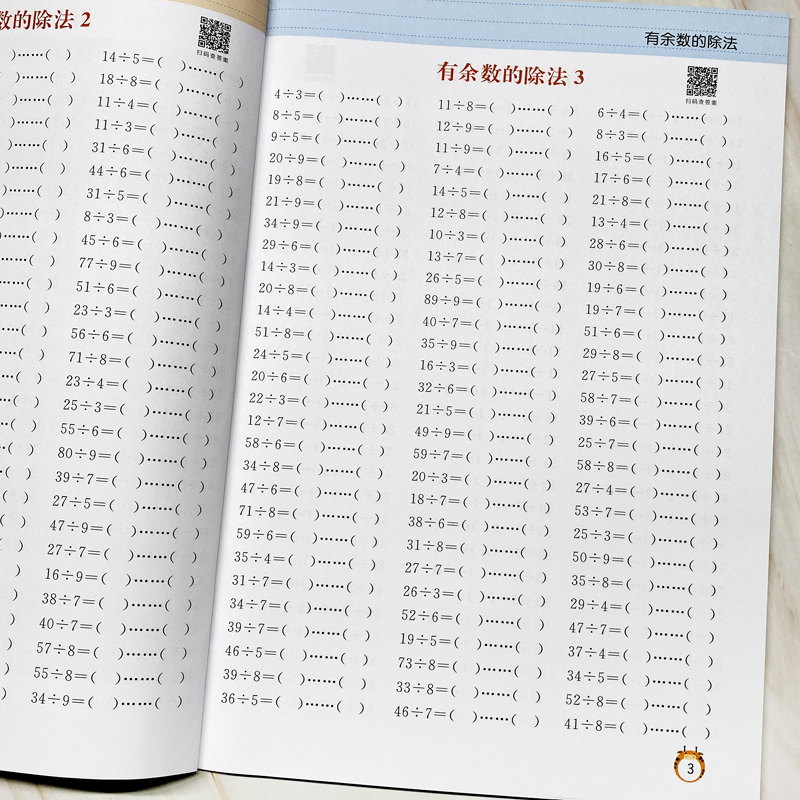 数的除法 2
扫码查答案
)……( )
14÷5=( )……( )
18÷8=( )……( )
11÷4=( )……( )
11÷3=( )……( )
31÷6=( )……( )
44÷6=( )……( )
31÷5=( )……( )
8÷3=( )……( )
45÷6=( )……( )
77÷9=( )……( )
51÷6=( )……( )
23÷3=( )……( )
56÷6=( )……( )
71÷8=( )……( )
23÷4=( )……( )
25÷3=( )……( )
55÷6=( )……( )
80÷9=( )……( )
39÷7=( )……( )
27÷5=( )……( )
47÷9=( )……( )
27÷7=( )……( )
16÷9=( )……( )
38÷7=( )……( )
40÷7=( )……( )
57÷8=( )……( )
55÷8=( )……( )
34÷9=( )……( )
有余数的除法
有余数的除法 3
扫码查答案
4÷3=( )……( )
8÷5=( )……( )
9÷5=( )……( )
20÷9=( )……( )
19÷8=( )……( )
21÷9=( )……( )
34÷9=( )……( )
29÷6=( )……( )
14÷3=( )……( )
20÷8=( )……( )
14÷4=( )……( )
51÷8=( )……( )
24÷5=( )……( )
20÷6=( )……( )
22÷3=( )……( )
12÷7=( )……( )
58÷6=( )……( )
34÷8=( )……( )
47÷6=( )……( )
71÷8=( )……( )
59÷6=( )……( )
35÷4=( )……( )
31÷7=( )……( )
34÷7=( )……( )
39÷7=( )……( )
46÷5=( )……( )
39÷8=( )……( )
36÷5=( )……( )
11÷8=( )……( )
12÷9=( )……( )
11÷9=( )……( )
7÷4=( )……( )
14÷5=( )……( )
12÷8=( )……( )
10÷3=( )……( )
13÷7=( )……( )
26÷5=( )……( )
89÷9=( )……( )
40÷7=( )……( )
35÷9=( )……( )
16÷3=( )……( )
32÷6=( )……( )
21÷5=( )……( )
49÷9=( )……( )
59÷7=( )……( )
20÷3=( )……( )
18÷7=( )……( )
38÷6=( )……( )
31÷8=( )……( )
27÷7=( )……( )
26÷3=( )……( )
52÷6=( )……( )
19÷5=( )……( )
73÷8=( )……( )
33÷8=( )……( )
46÷7=( )……( )
6÷4=( )……( )
8÷3=( )……( )
16÷5=( )……( )
17÷6=( )……( )
21÷8=( )……( )
13÷4=( )……( )
28÷6=( )……( )
30÷8=( )……( )
19÷6=( )……( )
19÷7=( )……( )
51÷6=( )……( )
29÷8=( )……( )
27÷5=( )……( )
58÷7=( )……( )
39÷6=( )……( )
25÷7=( )……( )
58÷8=( )……( )
27÷4=( )……( )
53÷7=( )……( )
25÷3=( )……( )
50÷9=( )……( )
35÷8=( )……( )
29÷4=( )……( )
47÷7=( )……( )
37÷4=( )……( )
34÷5=( )……( )
52÷8=( )……( )
41÷8=( )……( )
3